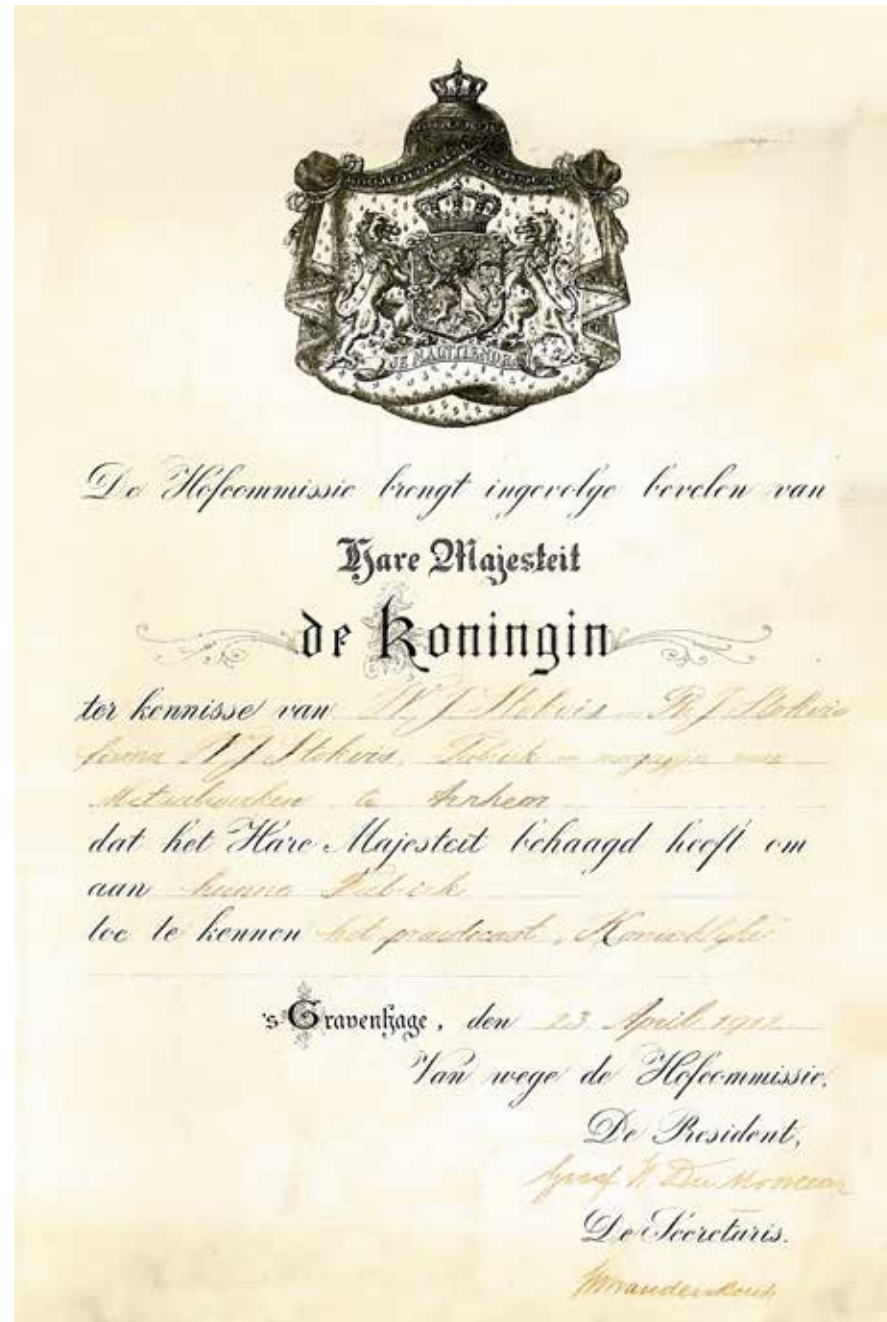 JE MAINTIENDRAI
De Hofcommissie brengt ingevolge bevelen van
Hare Majesteit
de Koningin
ter kennisse van W. J. Stokvis en Ph. J. Stokvis
firma W J Stokvis, Fabriek en magazijn van
Metaalwerken te Arnhem
dat het Hare Majesteit behaagd heeft om
aan hunne Fabriek
toe te kennen het praedicaat „Koninklijke”
's Gravenhage, den 23 April 1912
Van wege de Hofcommissie.
De President,
Graaf Du Monceau
De Secretaris.